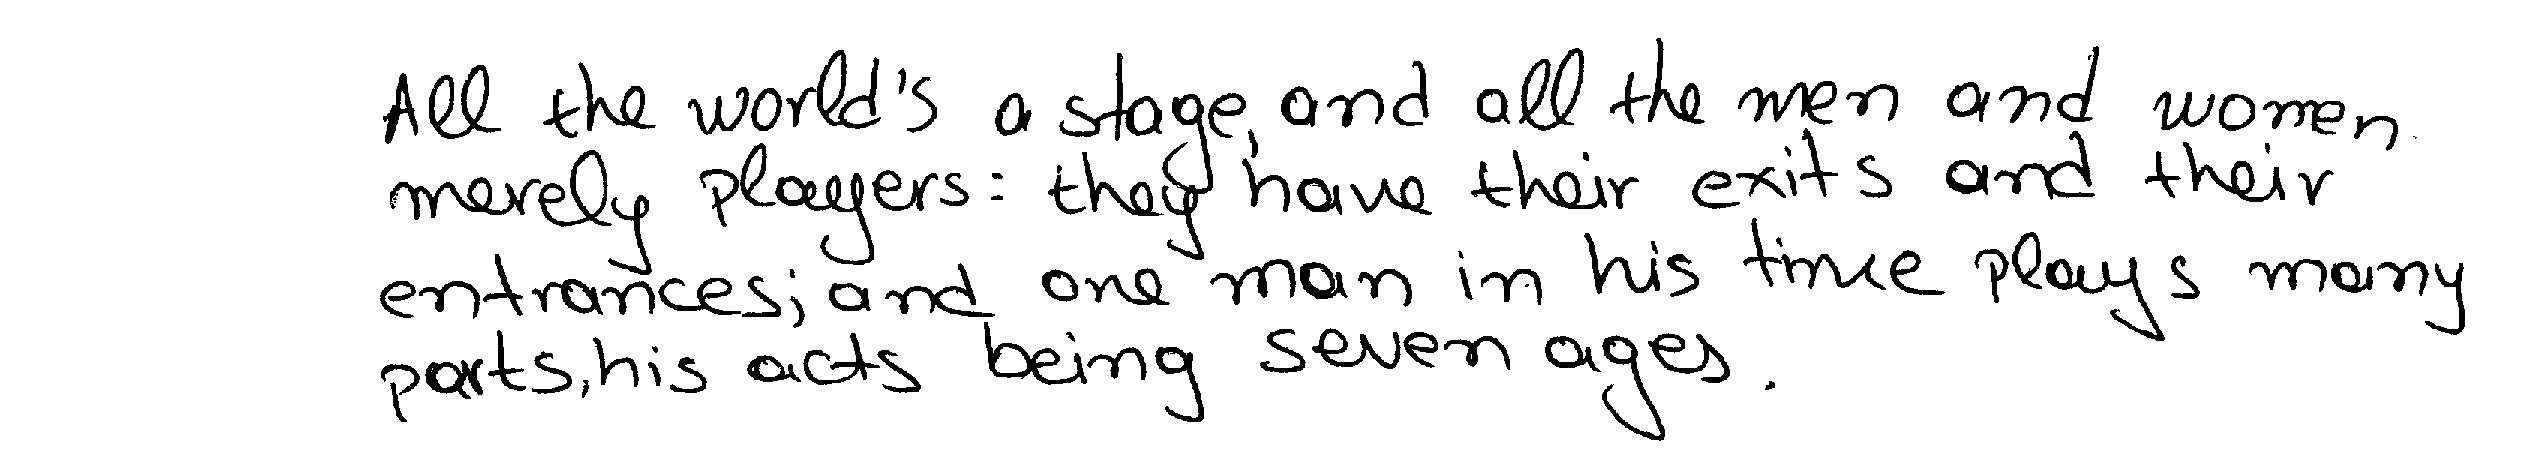 All the world's a stage, and all the men and women
merely players: they have their exits and their
entrances; and one man in his time plays many
parts, his acts being seven ages.